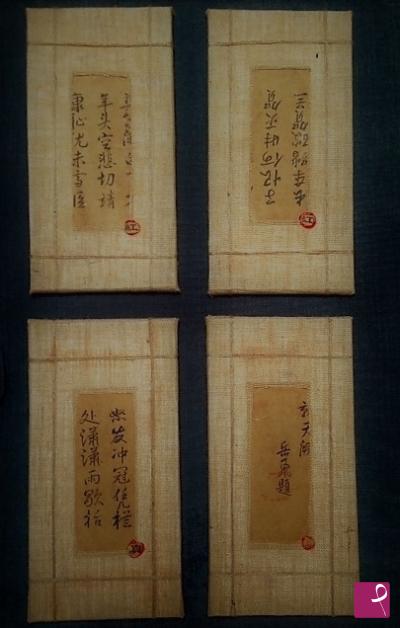 年头空悲切靖
康耻尤未雪臣
子恨何时灭驾
长车踏破贺兰
怒发冲冠凭栏
处潇潇雨歇抬
岳飞题